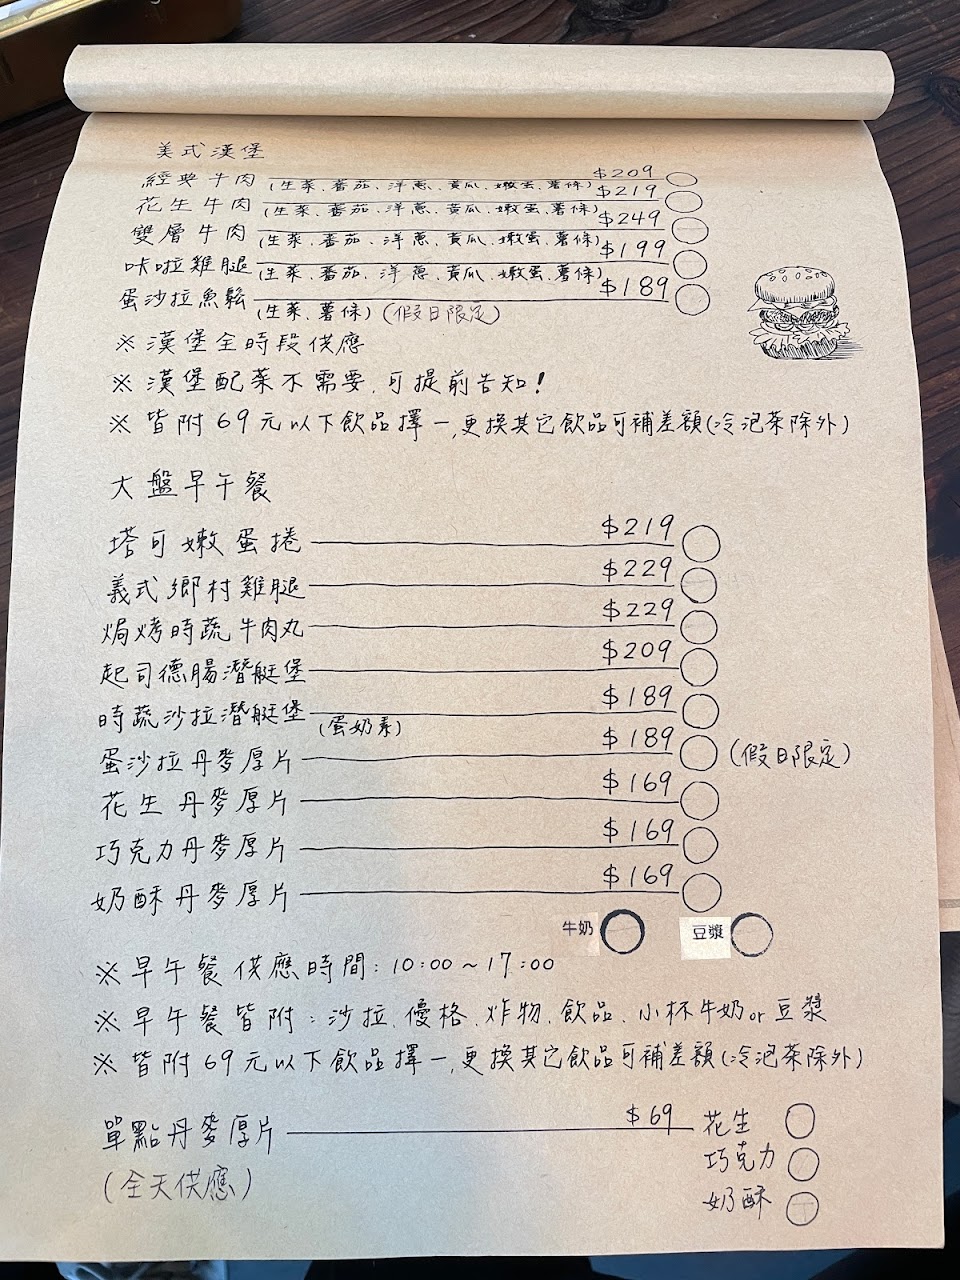 美式漢堡
經典牛肉 $209
(生菜、蕃茄、洋蔥、黃瓜、嫩蛋、薯條)
花生牛肉 $219
(生菜、蕃茄、洋蔥、黃瓜、嫩蛋、薯條)
雙層牛肉 $249
(生菜、蕃茄、洋蔥、黃瓜、嫩蛋、薯條)
咔啦雞腿 $199
(生菜、蕃茄、洋蔥、黃瓜、嫩蛋、薯條)
蛋沙拉魚鬆 $189
(生菜、薯條)(假日限定)
※漢堡全時段供應
※漢堡配菜不需要,可提前告知!
※皆附69元以下飲品擇一,更換其它飲品可補差額(冷泡茶除外)
大盤早午餐
塔可嫩蛋捲 $219
義式鄉村雞腿 $229
焗烤時蔬牛肉丸 $229
起司德腸潛艇堡 $209
時蔬沙拉潛艇堡 (蛋奶素) $189
蛋沙拉丹麥厚片 $189 (假日限定)
花生丹麥厚片 $169
巧克力丹麥厚片 $169
奶酥丹麥厚片 $169
牛奶 豆漿
※早午餐供應時間:10:00~17:00
※早午餐皆附:沙拉、優格、炸物、飲品、小杯牛奶or豆漿
※皆附69元以下飲品擇一,更換其它飲品可補差額(冷泡茶除外)
單點丹麥厚片 $69 花生
巧克力
(全天供應)
奶酥